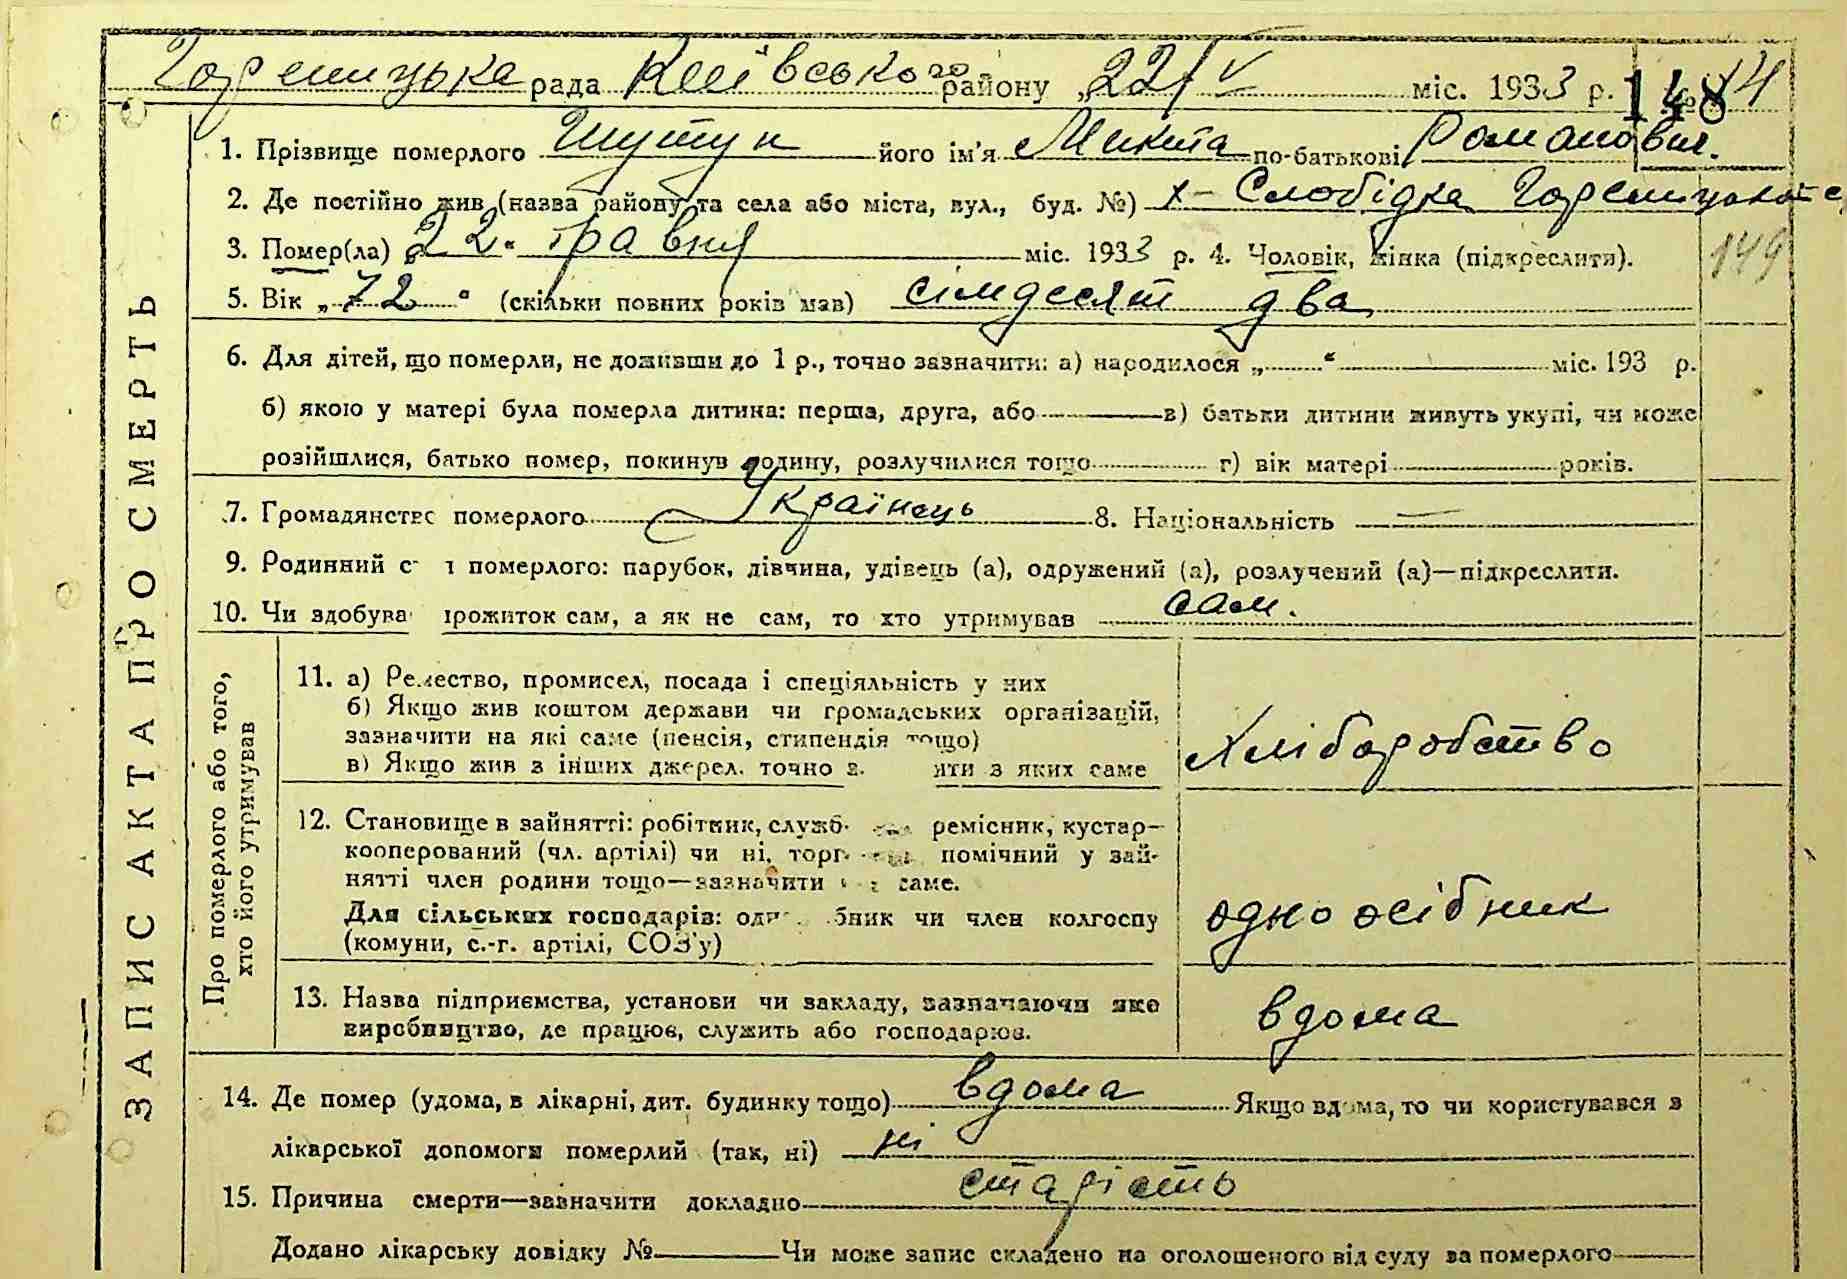 Гореницька рада Київського району „22/V міс. 1933 р. № 14
148
1. Прізвище померлого Шутун його ім'я Микита по-батькові Романович.
2. Де постійно жив (назва району та села або міста, вул., буд. №) х- Слобідка Гореницької с.
3. Помер(ла) „22" травня міс. 1933 р. 4. Чоловік, жінка (підкреслити).
149
5. Вік „72" (скільки повних років мав) сімдесят два
6. Для дітей, що померли, не доживши до 1 р., точно зазначити: а) народилося „ " міс. 193 р.
б) якою у матері була померла дитина: перша, друга, або в) батьки дитини живуть укупі, чи може
розійшлися, батько помер, покинув родину, розлучилися тощо г) вік матері років.
7. Громадянство померлого Українець 8. Національність —
9. Родинний с н померлого: парубок, дівчина, удівець (а), одружений (а), розлучений (а)—підкреслити.
10. Чи здобував прожиток сам, а як не сам, то хто утримував сам.
ЗАПИС АКТА ПРО СМЕРТЬ
Про померлого або того,
хто його утримував
11. а) Ремество, промисел, посада і спеціяльність у них
б) Якщо жив коштом держави чи громадських організацій,
зазначити на які саме (пенсія, стипендія тощо)
в) Якщо жив з інших джерел, точно з. яти з яких саме
Хліборобство
12. Становище в зайнятті: робітник, служб. ремісник, кустар—
кооперований (чл. артілі) чи ні, торг помічний у зай-
нятті член родини тощо—зазначити саме.
Для сільських господарів: одноосібник чи член колгоспу
(комуни, с.-г. артілі, СОЗ'у)
одноосібник
13. Назва підприємства, установи чи закладу, зазначаючи яке
виробництво, де працює, служить або господарює.
вдома
14. Де помер (удома, в лікарні, дит. будинку тощо) вдома Якщо вдома, то чи користувався з
лікарської допомоги померлий (так, ні) ні
15. Причина смерти—зазначити докладно старість
Додано лікарську довідку № Чи може запис складено на оголошеного від суду за померлого